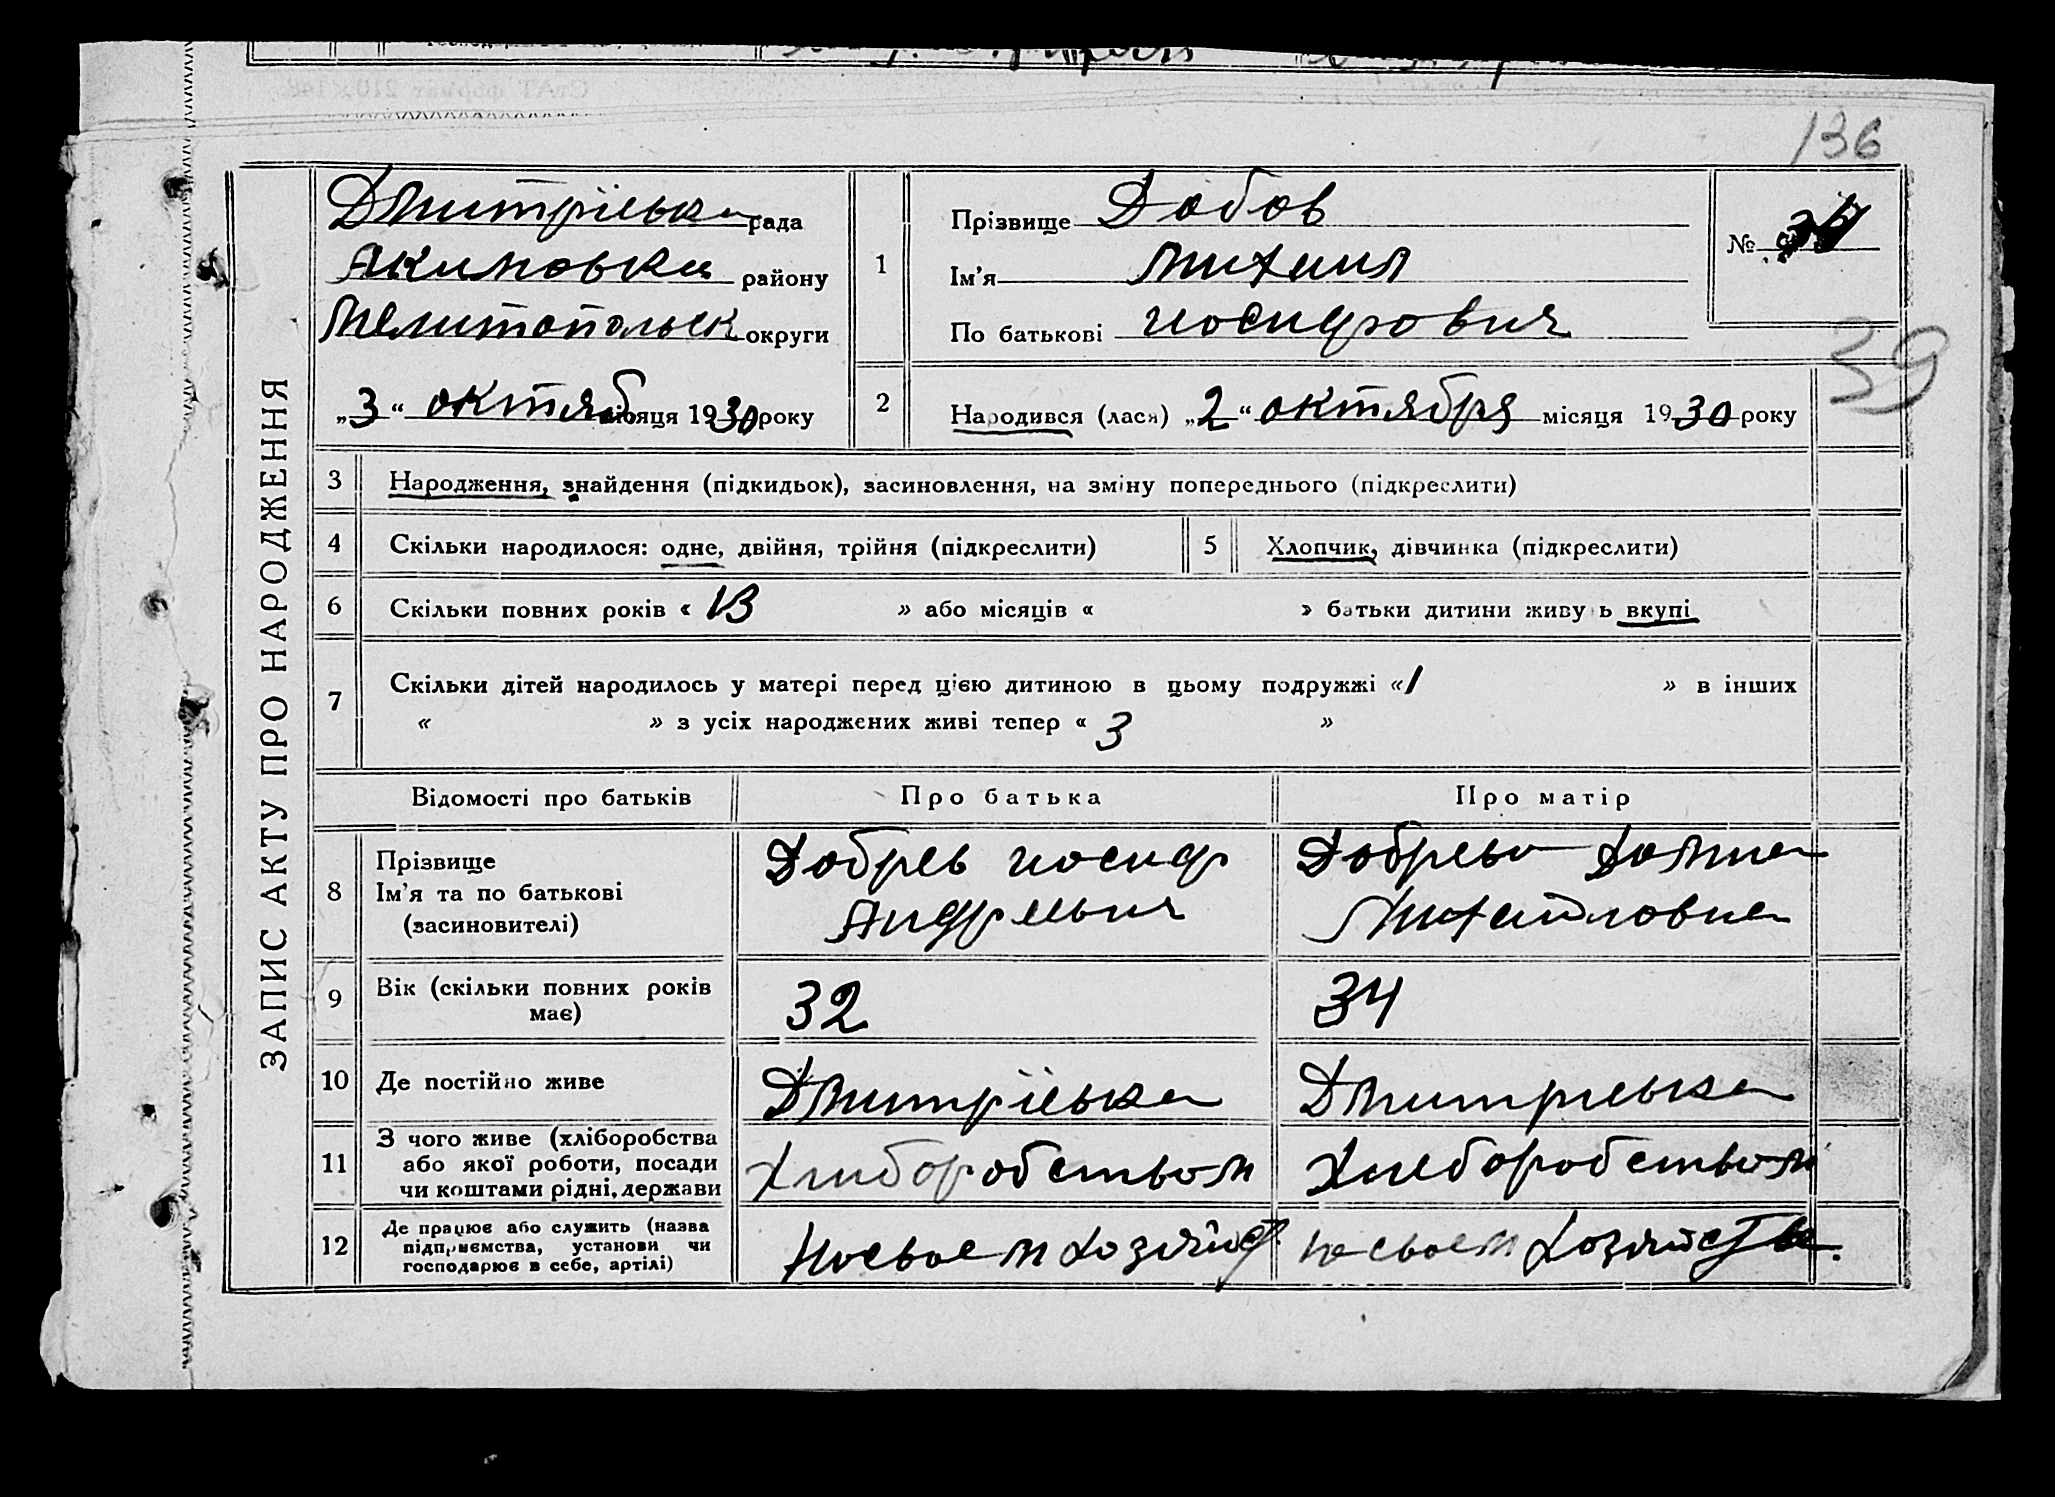 136
ЗАПИС АКТУ ПРО НАРОДЖЕННЯ
Дмитріевка рада
Акимовка району
Мелитопольск округи
„3“ октяб місяця 1930 року
1
Прізвище Добов
Ім’я Михаил
По батькові Иосифович
№
39
2
Народився (лася) „2“ октября місяця 1930 року
3 Народження, знайдення (підкидьок), засиновлення, на зміну попереднього (підкреслити)
4 Скільки народилося: одне, двійня, трійня (підкреслити) 5 Хлопчик, дівчинка (підкреслити)
6 Скільки повних років « 13 » або місяців « » батьки дитини живу ь вкупі
7 Скільки дітей народилось у матері перед цією дитиною в цьому подружжі « 1 » в інших
« » з усіх народжених живі тепер « 3 »
Відомості про батьків Про батька Про матір
8 Прізвище
Ім’я та по батькові
(засиновителі)
Добрев Иосиф
Андреевич
Добрева Домна
Михайловна
9 Вік (скільки повних років
має)
32 34
10 Де постійно живе Дмитріевка Дмитриевка
11 З чого живе (хліборобства
або якої роботи, посади
чи коштами рідні, держави
Хлиборобством Хлеборобством
12 Де працює або служить (назва
підприємства, установи чи
господарює в себе, артілі)
На своем хозяйст На своем хозяйстве.